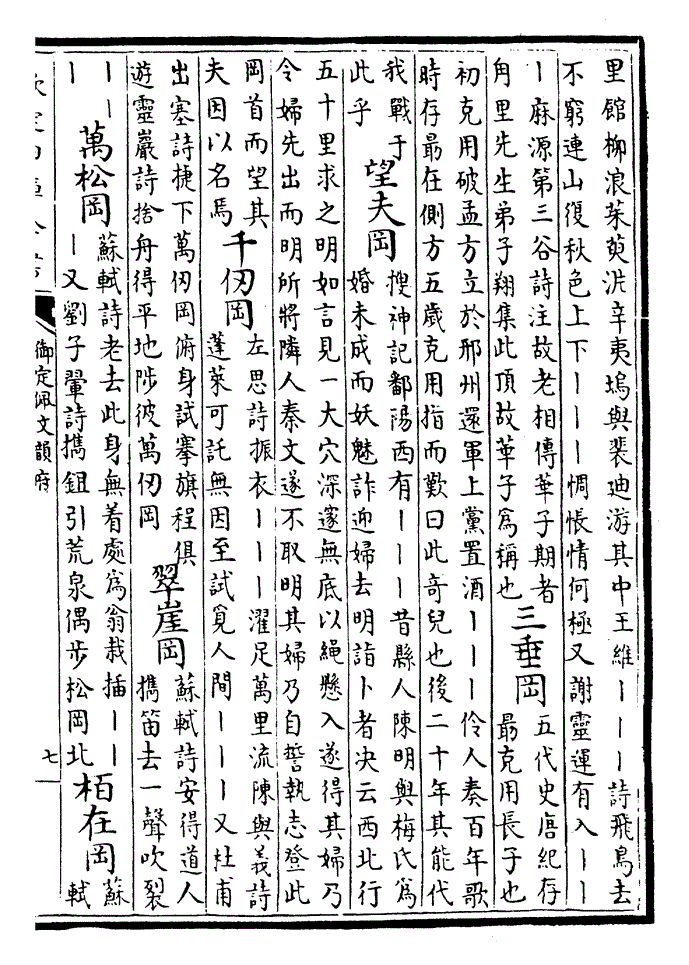 里館柳浪茱萸沜辛夷塢與裴迪游其中王維丨丨丨詩飛鳥去
不窮連山復秋色上下丨丨丨惆悵情何極又謝靈運有入丨丨
丨麻源第三谷詩注故老相傳華子期者
甪里先生弟子翔集此頂故華子為稱也
三垂岡
五代史唐紀存
最克用長子也
初克用破孟方立於邢州還軍上黨置酒丨丨丨伶人奏百年歌
時存最在側方五歲克用指而歎曰此奇兒也後二十年其能代
我戰于
此乎
望夫岡
搜神記鄱陽西有丨丨丨昔縣人陳明與梅氏為
婚未成而妖魅詐迎婦去明詣卜者决云西北行
五十里求之明如言見一大穴深邃無底以繩懸入遂得其婦乃
令婦先出而明所將隣人秦文遂不取明其婦乃自誓執志登此
岡首而望其
夫因以名焉
千仞岡
左思詩振衣丨丨丨濯足萬里流陳與義詩
蓬萊可託無因至試覓人間丨丨丨又杜甫
出塞詩捷下萬仞岡俯身試搴旗程俱
遊靈巖詩捨舟得平地陟彼萬仞岡
翠崖岡
蘇軾詩安得道人
攜笛去一聲吹裂
丨丨
丨
萬松岡
蘇軾詩老去此身無着處為翁栽插丨丨
丨又劉子翬詩攜鉏引荒泉偶步松岡北
栢在岡
蘇
軾
欽定四庫全書
御定佩文韻府
七